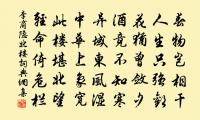 春物豈相干
人生只強歡
花猶曾斂夕
酒竟不知寒
異域東風濕
中華上象寬
此樓堪北望
輕命倚危欄
李商隱北樓詞典網集